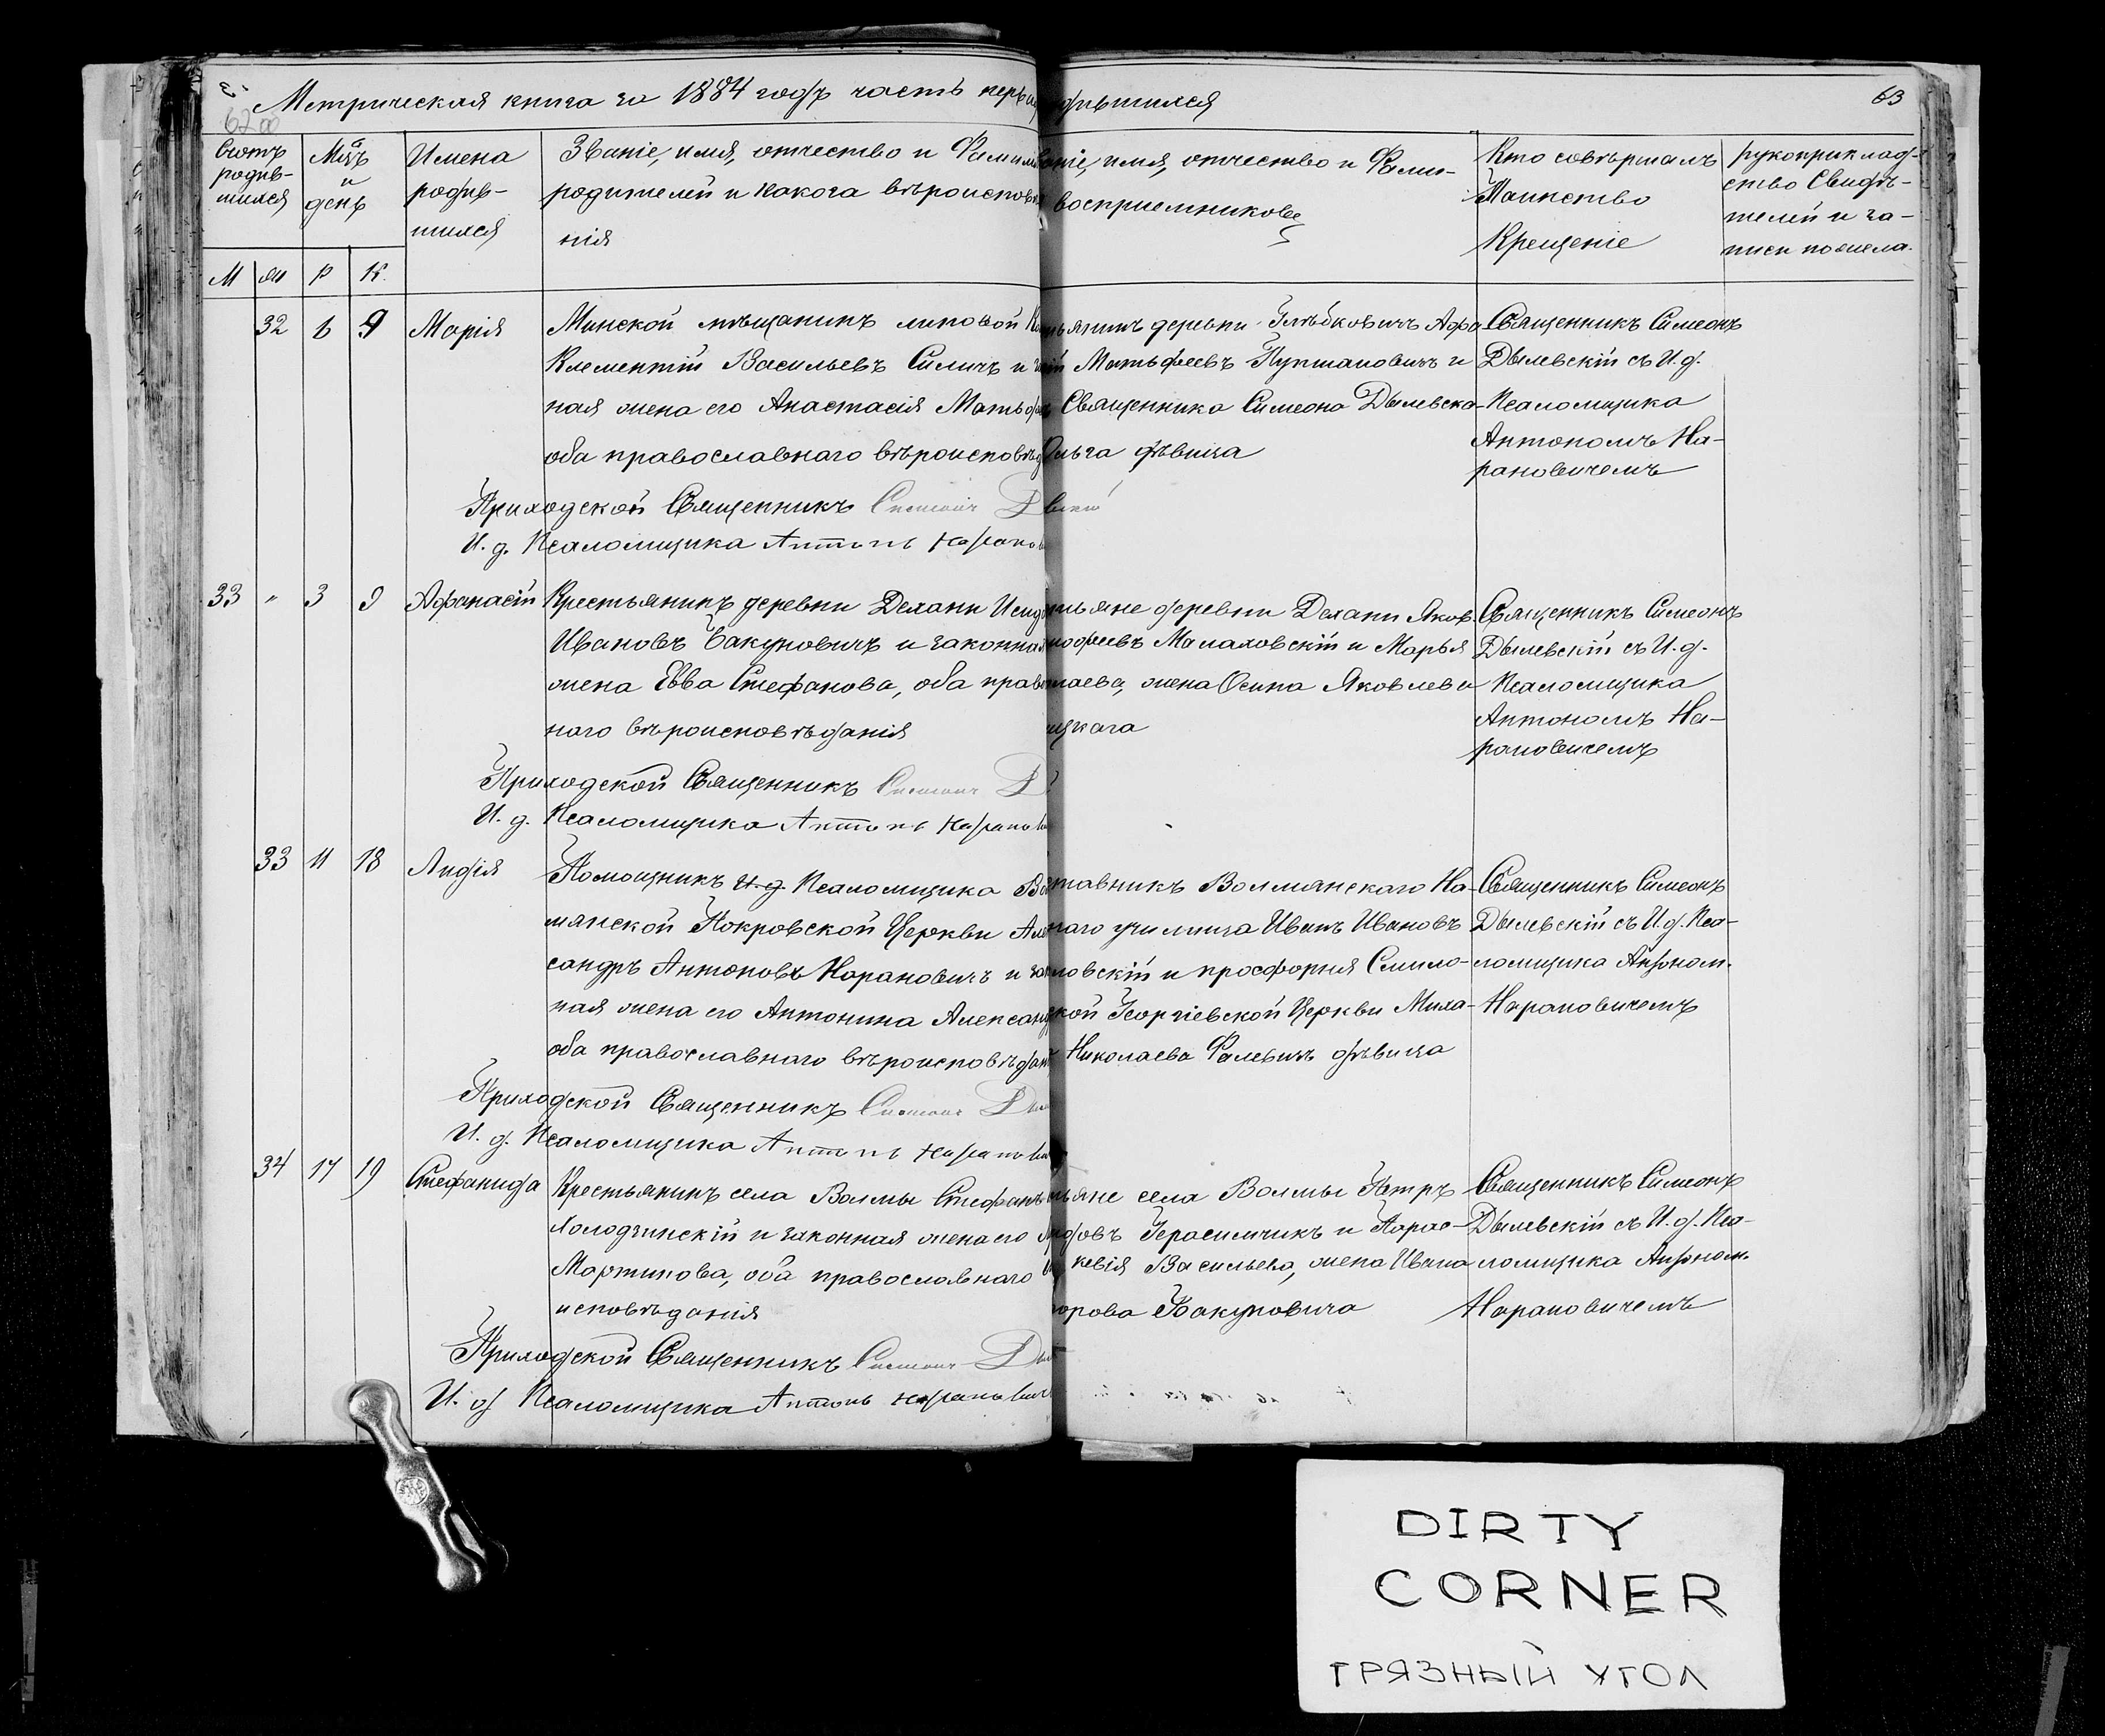 Метрическая книга за 1884 годъ часть первая
дившихся
63
Счотъ родив-шихся
Мѣцъ и день
Имена родив-шихся
Званіе, имя, отчество и Фамил
родителей и какога вѣроисповѣ
нія
аніе, имя, отчество и Фами-
восприемниковъ
Кто совѣршалъ
Таинство
Крещеніе
рукоприклад-
ство Свидѣ-
телей и за-
писи по жела.
М ж Р К.
32 6 9 Марія
Минской мѣщанинъ
Клементій Васильевъ Силичъ и
ная жена его Анастасія Матьф
оба православнаго вѣроисповѣд
янинъ деревни Глѣбковичъ Афа
Матьфеевъ и
Священника Симеона Дылевска
Ольга дѣвица
Священникъ Симеонъ
Дылевскій съ И.д.
Псаломщика
Антономъ На-
рановичемъ
Приходской Священникъ Симеонъ
И. д. Псаломщика Антонъ Наранов
33 " 3 9 Афанасій
Крестьянинъ деревни Деханн
Ивановъ Бакуновичъ и законная
жена Евва Стефанова, оба прав
наго вѣроисповѣданія
ьяне деревни Деханн Яков
мофеевъ Малаховскій и Марья
лаева, жена Осипа Яковлева
цкага
Священникъ Симеонъ
Дылевскій съ И.д.
Псаломщика
Антономъ На-
рановичемъ
Приходской Священникъ Симеонъ
И. д. Псаломщика Антонъ Наранов
33 11 18 Лидія
Помощникъ и.д. Псаломщика Во
мянской Покровской Церкви Але
сандръ Антоновъ Нарановичъ и зак
ная жена его Антонина Александ
оба православнаго вѣроисповѣдан
тавникъ Волмянскаго На-
наго училища Иванъ Ивановъ
ловскій и просфорня Смило-
кой Георгіевской Церкви Миха-
Николаева Фалевичъ дѣвица
Священникъ Симеонъ
Дылевскій съ И.д. Пса-
ломщика Антоном.
Нарановичемъ
Приходской Священникъ Симеонъ
И. д. Псаломщика Антонъ Наранов
34 17 19 Стефанида
Крестьянинъ села Волмы Стефанъ
Холодзинскій и законная жена его
Мартинова, оба православнаго
исповѣданія
ьяне села Волмы Петръ
Герасимчикъ и Парас-
кевія Васильева, жена Ивана
орова Бакуновича
Священникъ Симеонъ
Дылевскій съ И.д. Пса-
ломщика Антоном
Нарановичемъ
Приходской Священникъ Симеонъ
И. д Псаломщика Антонъ Наранович
DIRTY
CORNER
ГРЯЗНЫЙ УГОЛ